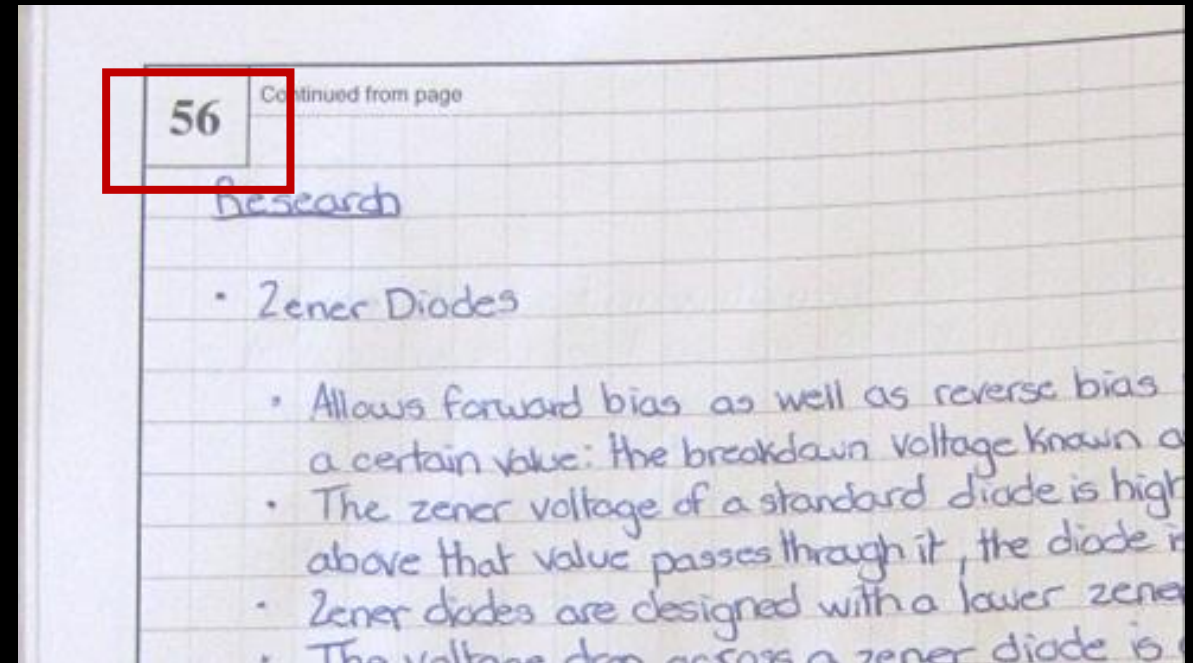 56
Continued from page
Research
· Zener Diodes
· Allows forward bias as well as reverse bias
a certain value: the breakdown voltage known
· The zener voltage of a standard diode is
above that value passes through it, the diode
· Zener diodes are designed with a lower
· The voltage drop across a zener diode is